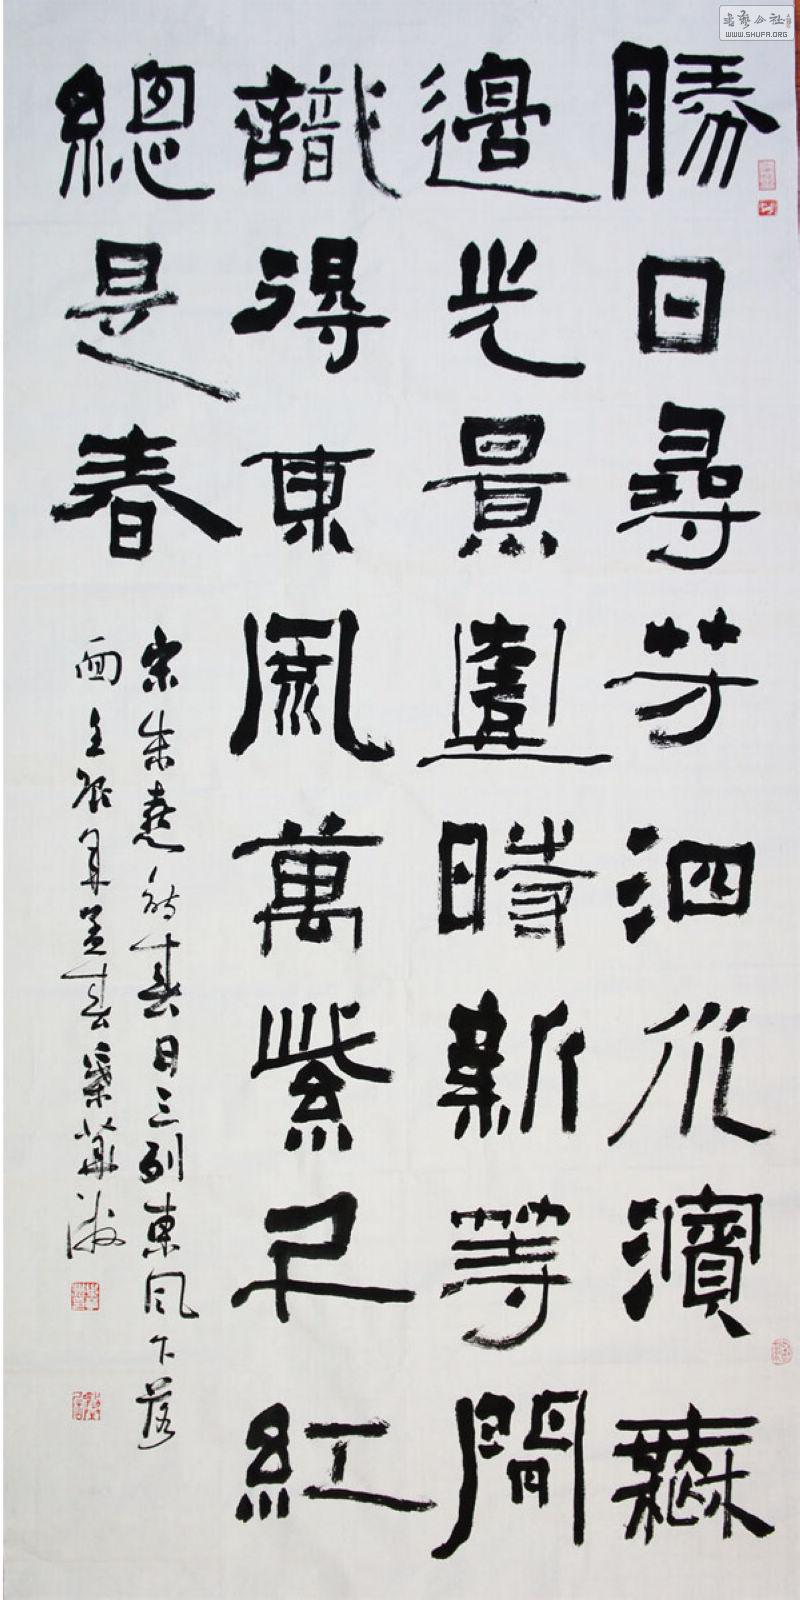 勝日尋芳泗水濱無
邊光景壹時新等閒
識得東風萬紫千紅
總是春
宋朱熹詩春日三列東風下落
面年孟春
書藝公社
WWW.SHUFA.ORG